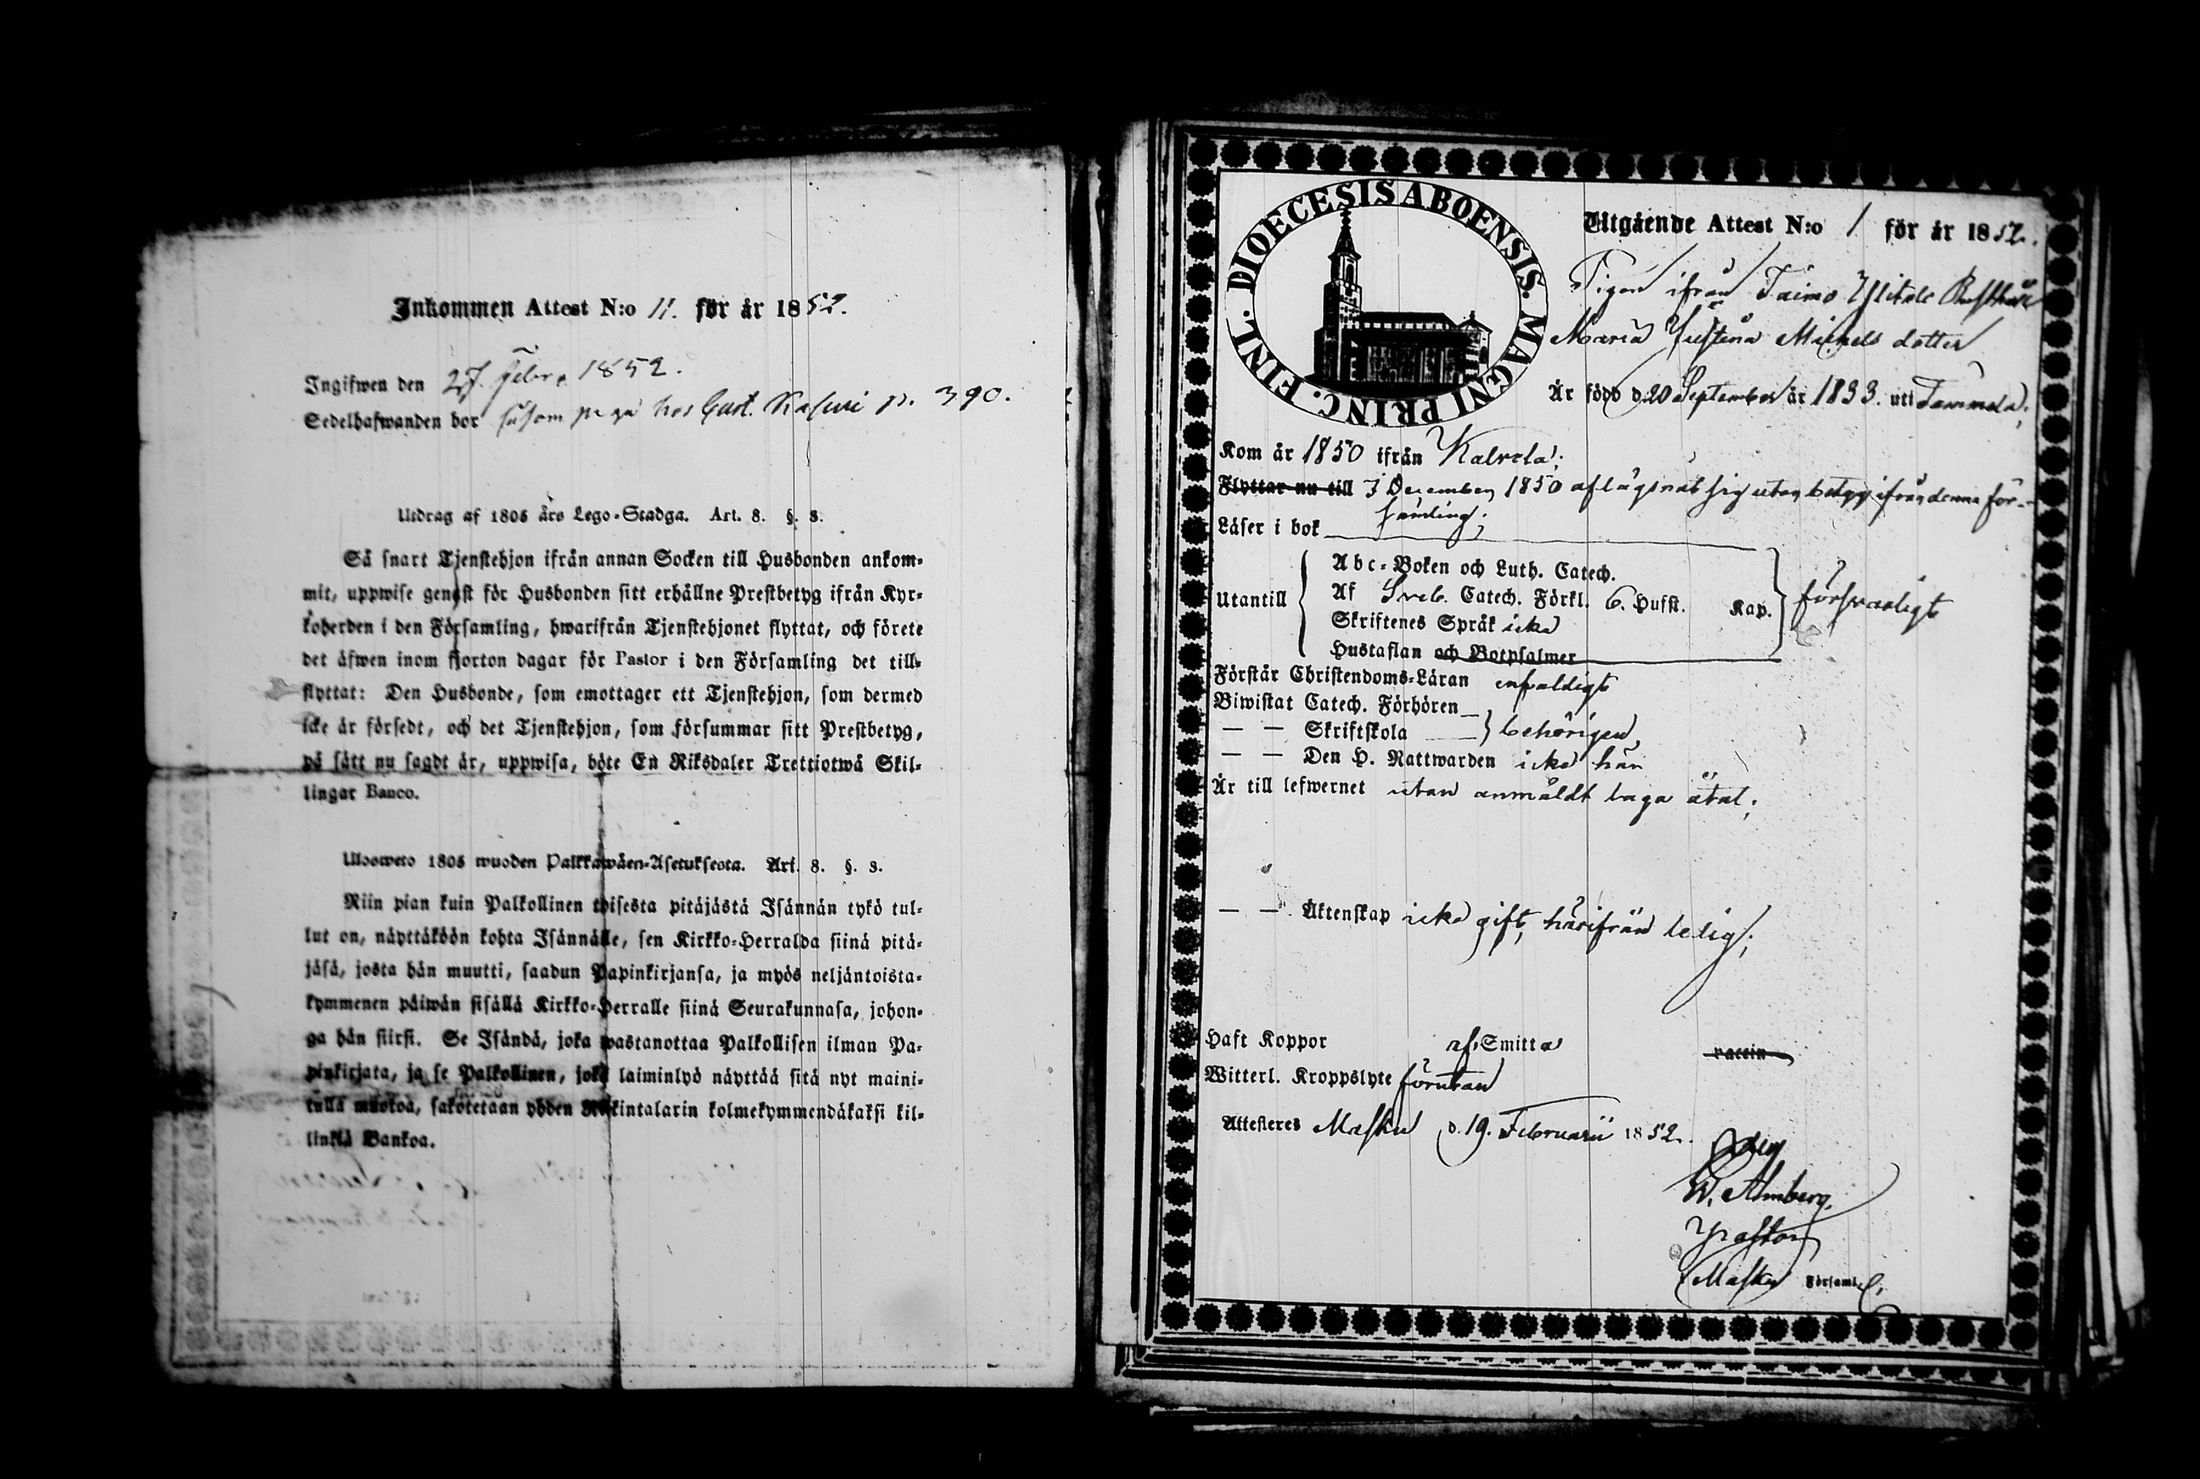 Inkommen Attest N:o 11. för år 1852.
Ingifwen den 27. Febr. 1852.
Sedelhafwanden bor såsom piga hos Gust. Kaswi p. 390.
Utdrag af 1805 års Lego-Stadga. Art. 8. §. 3.
Så snart Tjenstehjon ifrån annan Socken till Husbonden ankom-
mit, uppwise genast för Husbonden sitt erhållne Prestbetyg ifrån Kyr-
koherden i den Församling, hwarifrån Tjenstehjonet flyttat, och förete
det äfwen inom fjorton dagar för Pastor i den Församling det till-
flyttat: Den Husbonde, som emottager ett Tjenstehjon, som dermed
icke är försedt, och det Tjenstehjon, som försummar sitt Prestbetyg,
på sätt nu sagdt är, uppwisa, böte En Riksdaler Trettiotwå Skil-
lingar Banco.
Ulosweto 1805 wuoden Palkkawäen-Asetuksesta. Art. 8. §. 3.
Niin pian kuin Palkollinen toisesta pitäjästä Isännän tykö tul-
lut on, näyttäköön kohta Isännälle, sen Kirkko-Herralda siinä pitä-
jäsä, josta hän muutti, saadun Papinkirjansa, ja myös neljäntoista-
kymmenen päiwän sisällä Kirkko-Herralle siinä Seurakunnasa, johon-
ga hän siirsi. Se Isändä, joka wastanottaa Palkollisen ilman Pa-
pinkirjata, ja se Palkollinen, joka laiminlyö näyttää sitä nyt maini-
tulla muokoa, sakotetaan yhden Riikintalarin kolmekymmendäkaksi kil-
linkiä Bankoa.
DIOECESIS ABOENSIS. MAGNI PRINC. FINL.
Utgående Attest N:o 1 för år 1852.
Pigan ifrån Taimo Ylitalo Rusthåll
Maria Justina Michels dotter
Är född d. 20 September år 1833. uti Tammela;
Kom år 1850 ifrån Kalvola;
Flyttar nu till I December 1850 aflägsnat sig utan betyg ifrån denna för-
samling;
Läser i bok
Utantill
Abc-Boken och Luth. Catech.
Af Sveb. Catech. Förkl. 6. Hufst. Kap. försvarligt
Skriftenes Språk icke
Hustaflan och Botpsalmer
Förstår Christendoms-Läran enfaldigt
Biwistat Catech. Förhören
— — Skriftskola behörigen,
— — Den H. Nattwarden icke här
Är till lefwernet utan anmäldt laga åtal;
— — Äktenskap icke gift, härifrån ledig;
Haft Koppor af Smitta vaccin
Witterl. Kroppslyte förutan
Attesteres Masku d. 19. Februarii 1852.
W. Almberg.
Pastor
Masku Församl.